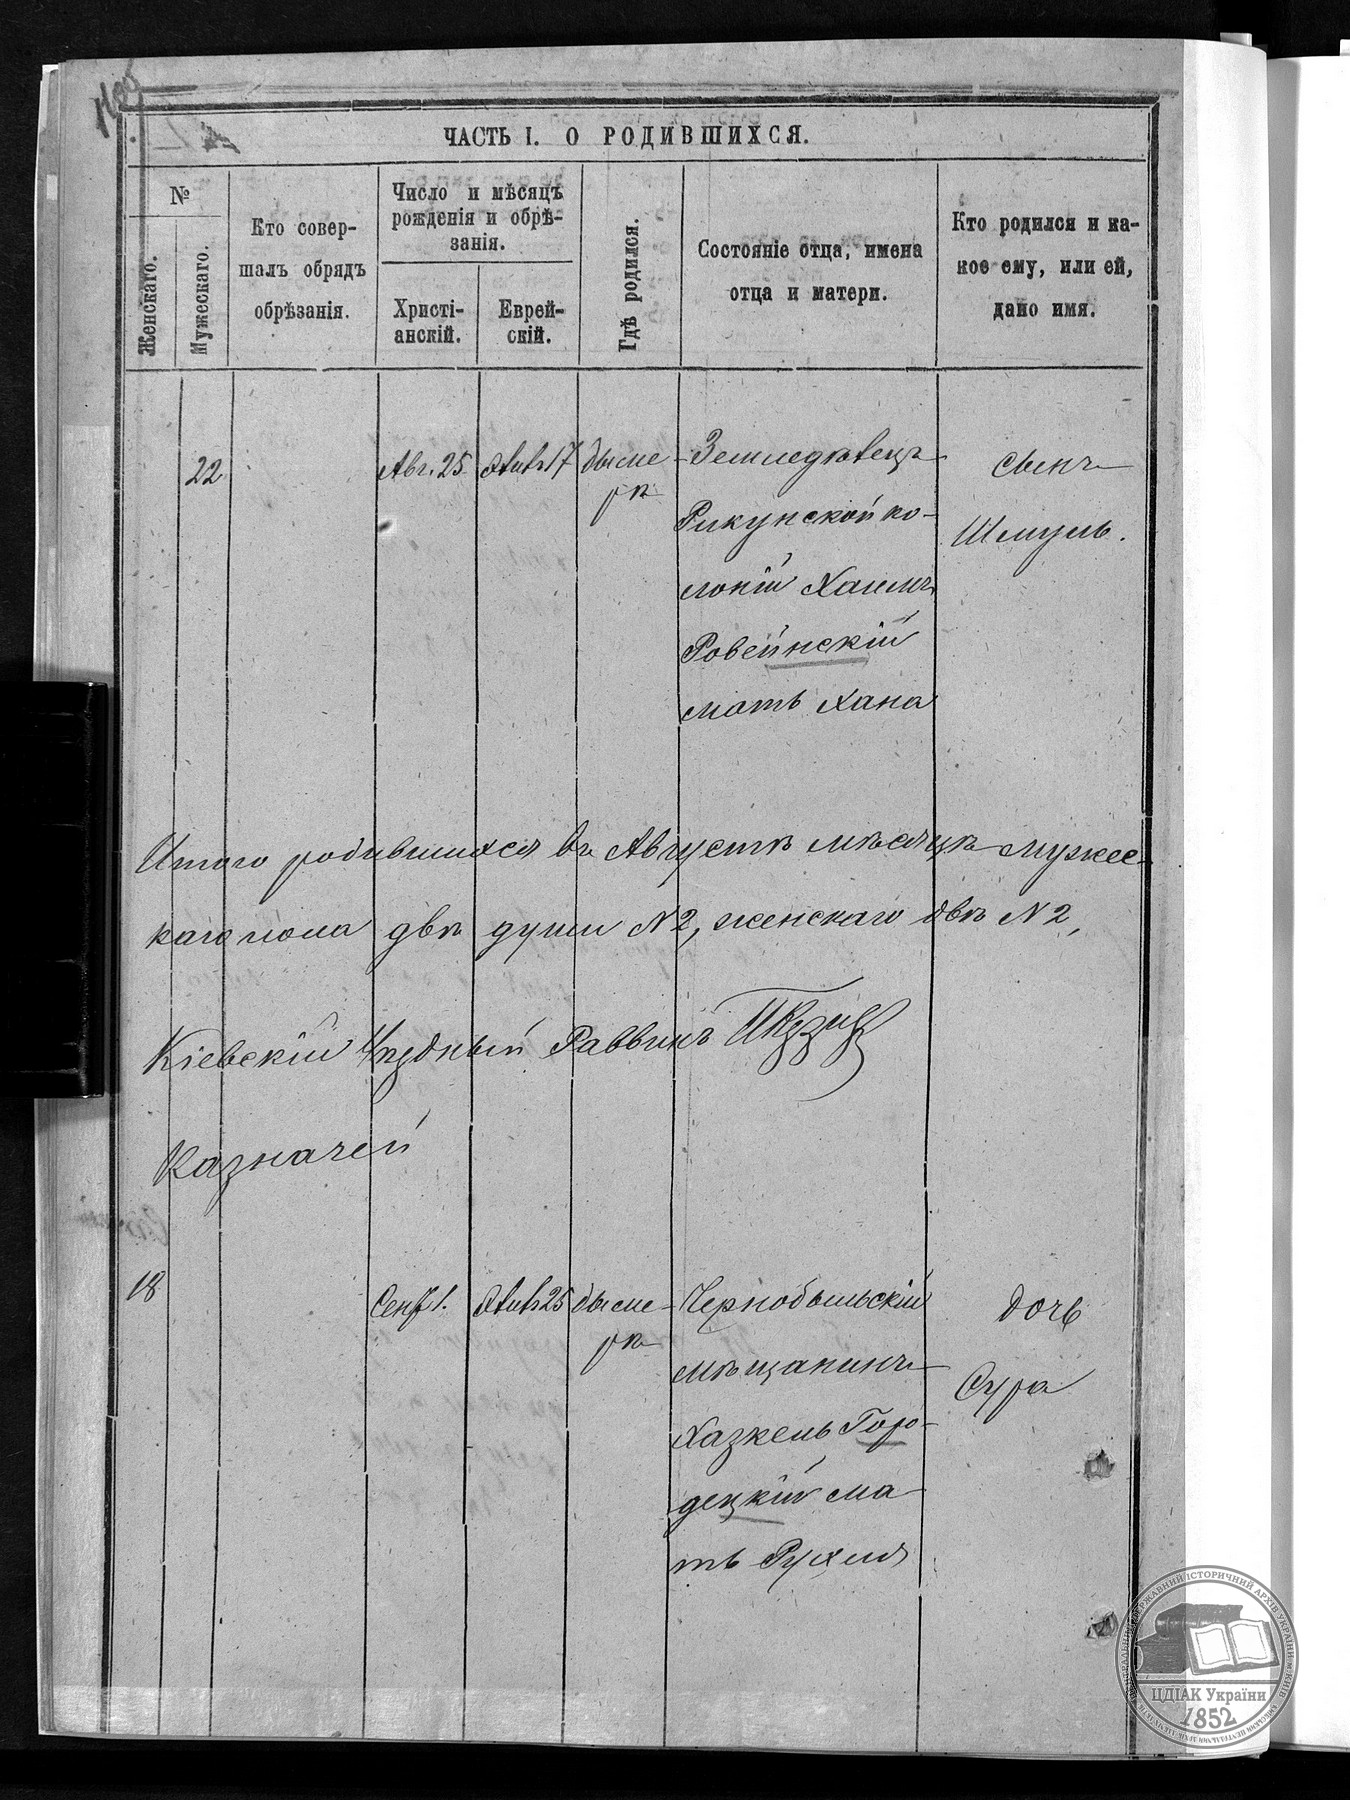 ЧАСТЬ I. О РОДИВШИХСЯ.
№
Женскаго.
Мужескаго.
Кто совер-
шалъ обрядъ
обрѣзанія.
Число и мѣсяцъ
рожденія и обрѣ-
занія.
Христі-
анскій.
Еврей-
скій.
Гдѣ родился.
Состояніе отца, имена
отца и матери.
Кто родился и ка-
кое ему, или ей,
дано имя.
22
Авг. 25
17
Дыме-
рѣ
Земледѣлецъ
Рикунской ко-
лоніи Хаимъ
Ровейнскій
мать Хана
сынъ
Шмуль.
Итого родившихся въ Августѣ мѣсяцѣ мужес-
каго пола двѣ души N 2, женскаго двѣ N 2,
Кіевскій Уѣздный Раввинъ
Казначей
18
Сент. 1.
25
Дыме-
рѣ
Чернобыльскій
мѣщанинъ
Хазкель Горо-
децкій ма-
ть Рухля
дочь
Сура
ЦДІАК України
1852